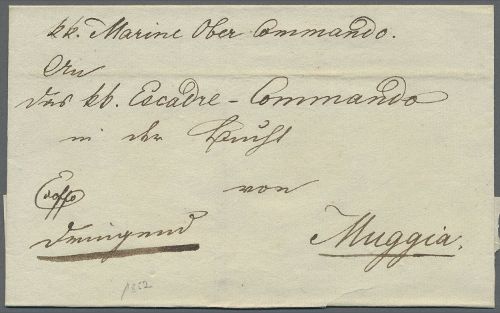 kk. Marine Ober Commando.
An
das kk. Escadre-Commando
in der Bucht
von
Exoffo
Muggia.
dringend
1852